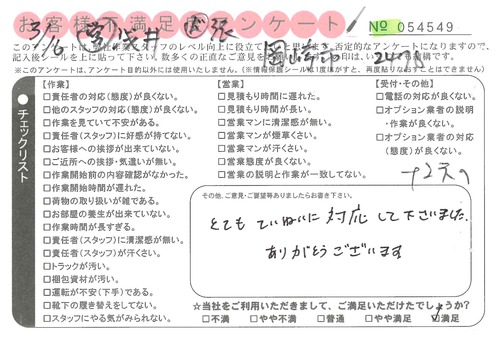 お客様不満足アンケート
№ 054549
3/6
岡崎市
このアンケートは、
否定的なアンケートになりますので、
記入後シールを上に貼って下さい。
※このアンケートは、アンケート目的以外には使用いたしません。(※情報保護シールは1度はがすと、再度貼りなおすことはできません)
チェックリスト
【作業】
□責任者の対応(態度)が良くない。
□他のスタッフの対応(態度)が良くない。
□作業を見ていて不安がある。
□責任者(スタッフ)に好感が持てない。
□お客様への挨拶が出来ていない。
□ご近所への挨拶・気遣いが無い。
□作業開始前の内容確認がなかった。
□作業開始時間が遅れた。
□荷物の取り扱いが雑である。
□お部屋の養生が出来ていない。
□作業時間が長すぎる。
□責任者(スタッフ)に清潔感が無い。
□責任者(スタッフ)が汗くさい。
□トラックが汚い。
□梱包資材が汚い。
□運転が不安(下手)である。
□靴下の履き替えをしてない。
□スタッフにやる気がみられない。
【営業】
□見積もり時間に遅れた。
□見積もり時間が長い。
□営業マンに清潔感が無い。
□営業マンが煙草くさい。
□営業マンが汗くさい。
□営業態度が良くない。
□営業の説明と作業が一致してない。
【受付・その他】
□電話の対応が良くない。
□オプション業者の説明
・作業が良くない。
□オプション業者の対応
(態度)が良くない。
その他、ご意見・ご要望等ありましたらお書き下さい。
とてもていねいに対応して下さいました。
ありがとうございます
☆当社をご利用いただきまして、ご満足いただけたでしょうか?
□不満 □やや不満 □普通 □やや満足 ☑満足